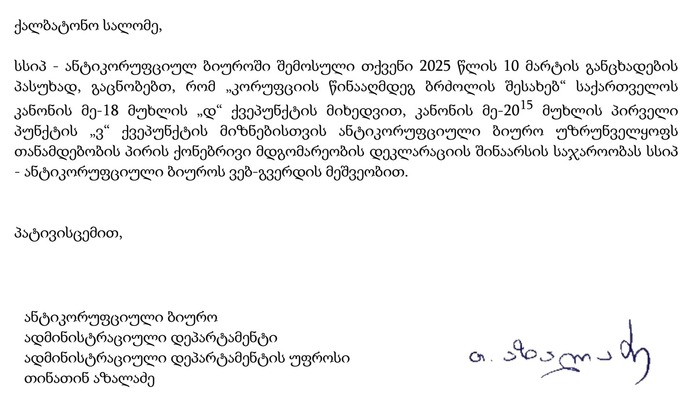 ქალბატონო სალომე,
სსიპ - ანტიკორუფციულ ბიუროში შემოსული თქვენი 2025 წლის 10 მარტის განცხადების
პასუხად, გაცნობებთ, რომ „კორუფციის წინააღმდეგ ბრძოლის შესახებ“ საქართველოს
კანონის მე-18 მუხლის „დ“ ქვეპუნქტის მიხედვით, კანონის მე-20¹⁵ მუხლის პირველი
პუნქტის „ვ“ ქვეპუნქტის მიზნებისთვის ანტიკორუფციული ბიურო უზრუნველყოფს
თანამდებობის პირის ქონებრივი მდგომარეობის დეკლარაციის შინაარსის საჯაროობას სსიპ
- ანტიკორუფციული ბიუროს ვებ-გვერდის მეშვეობით.
პატივისცემით,
ანტიკორუფციული ბიურო
ადმინისტრაციული დეპარტამენტი
ადმინისტრაციული დეპარტამენტის უფროსი
თინათინ აზალაძე
თ. აზალაძე